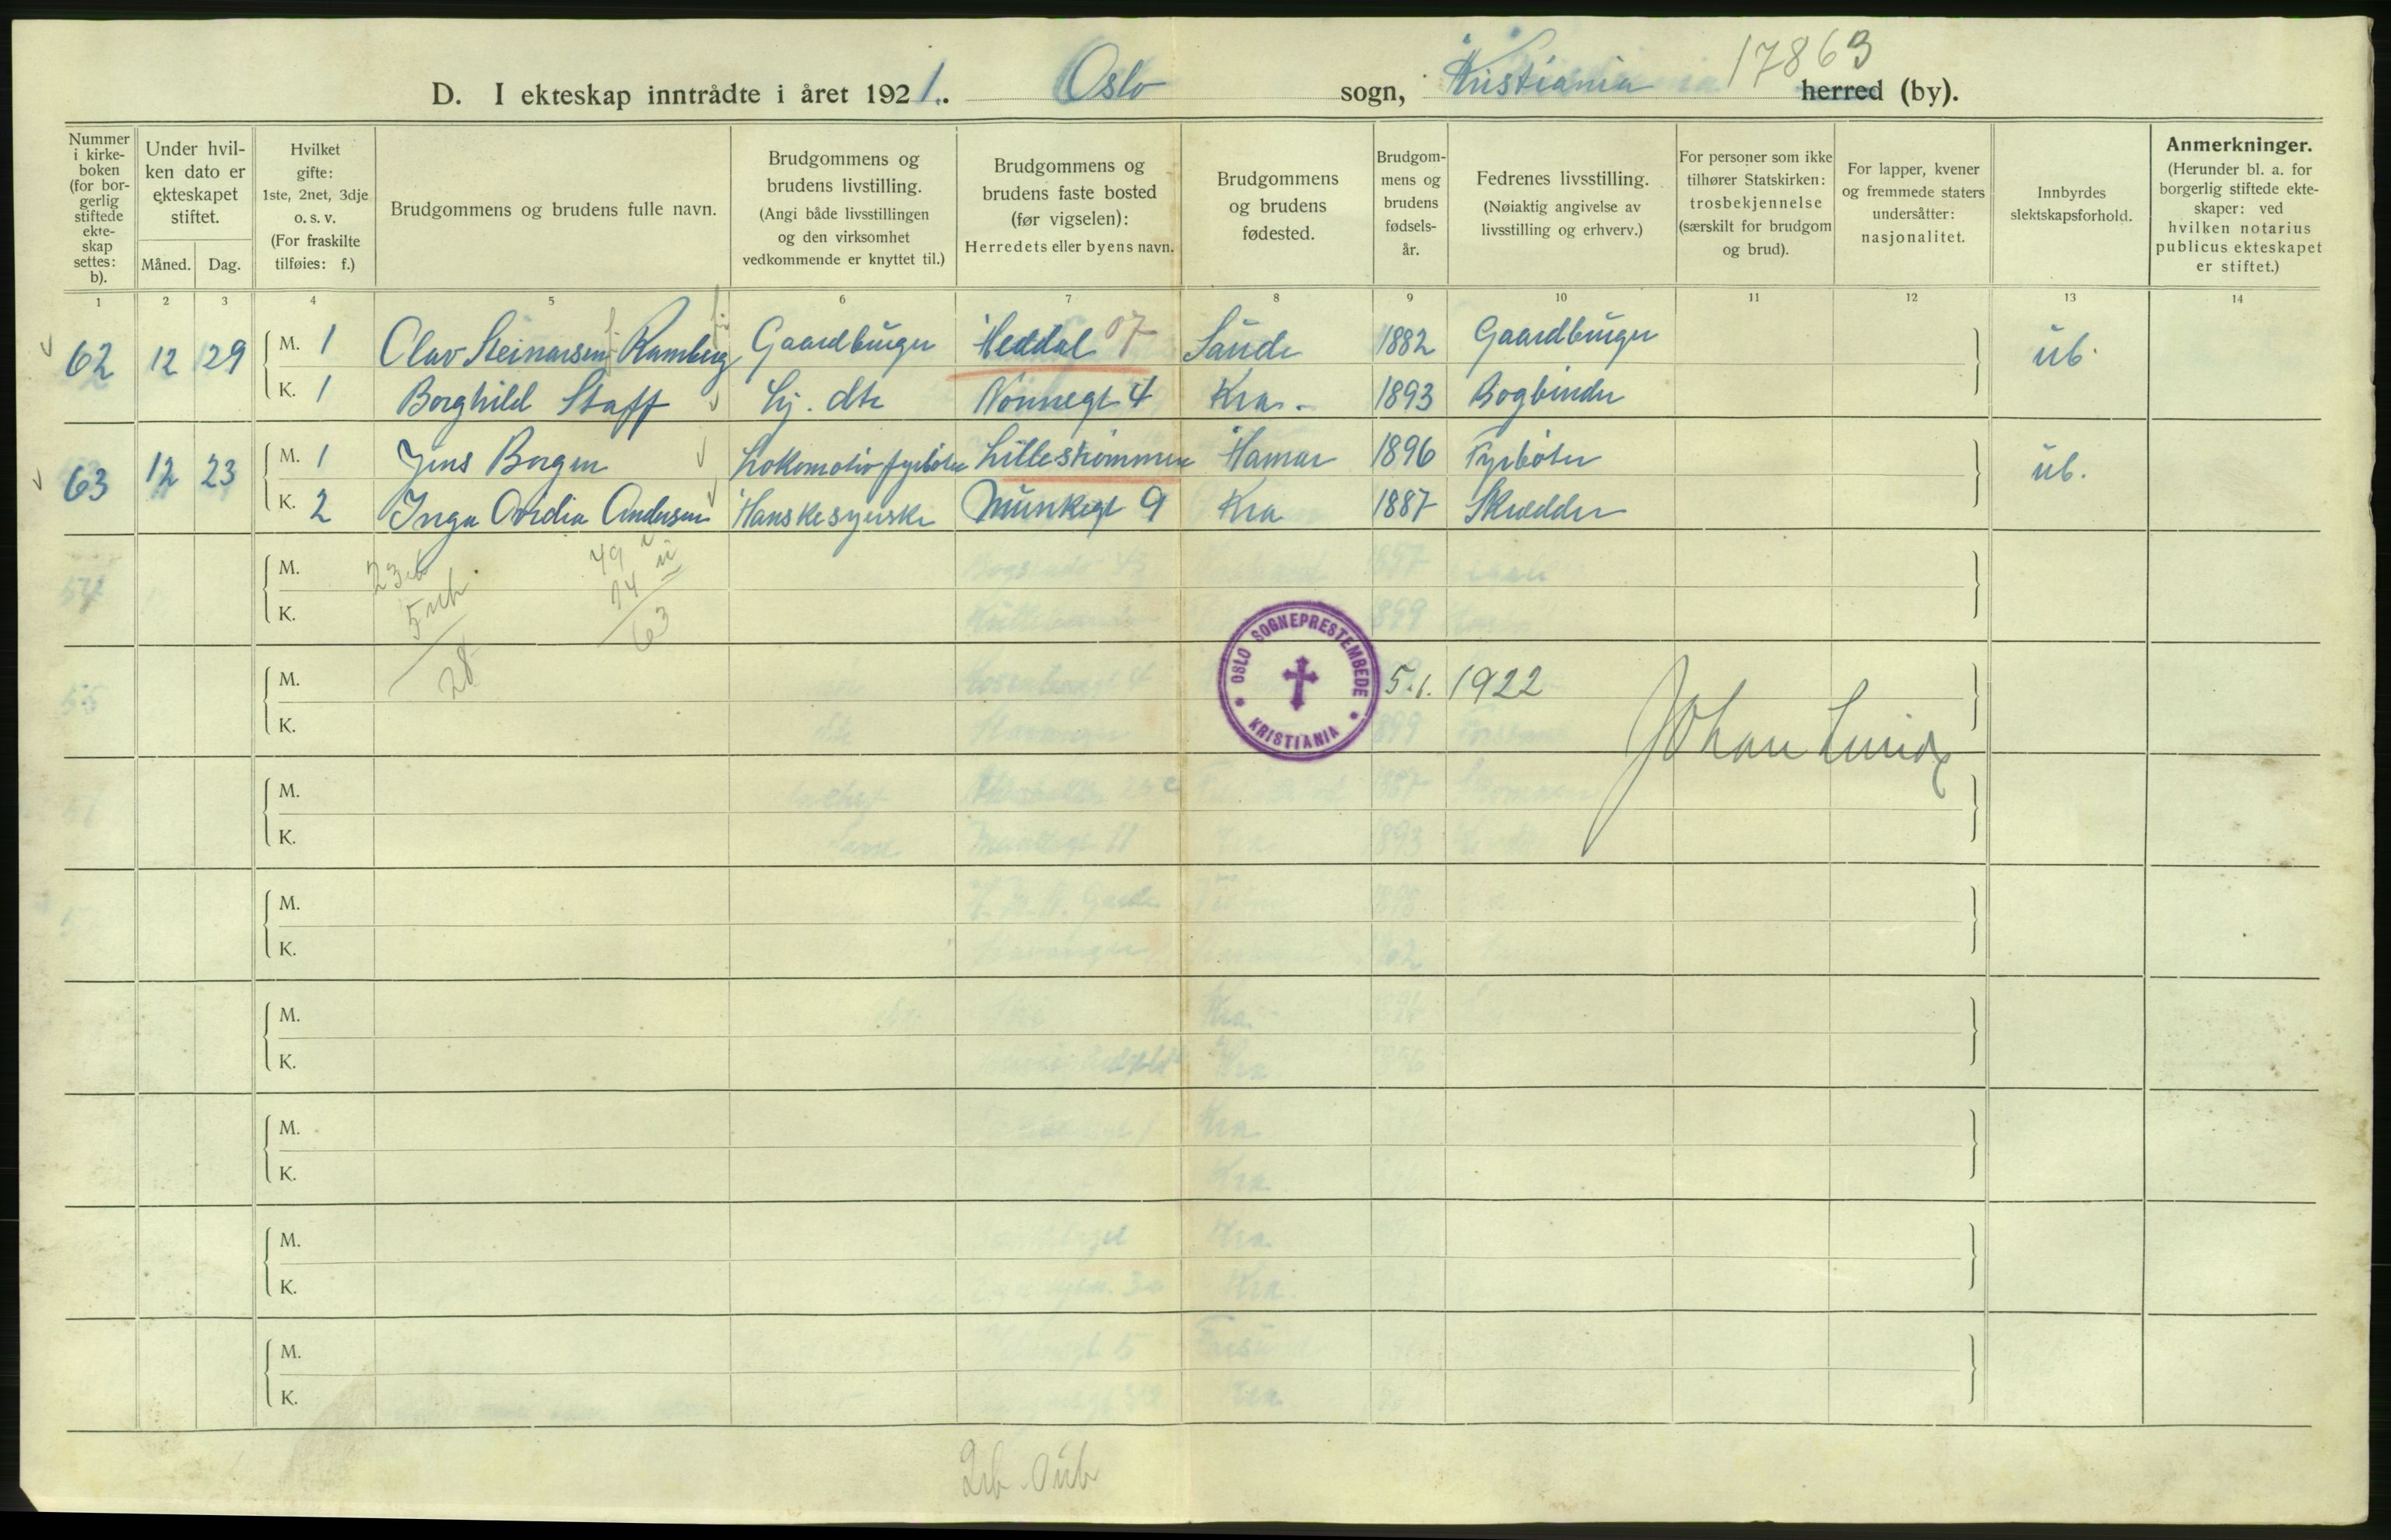 17863
D. I ekteskap inntrådte i året 1921. Oslo sogn, Kristiania herred (by).
Nummer i kirkeboken (for borgerlig stiftede ekteskap settes: b).
Under hvilken dato er ekteskapet stiftet.
Måned. Dag.
Hvilket gifte: 1ste, 2net, 3dje o. s. v. (For fraskilte tilføies: f.)
Brudgommens og brudens fulle navn.
Brudgommens og brudens livstilling. (Angi både livsstillingen og den virksomhet vedkommende er knyttet til.)
Brudgommens og brudens faste bosted (før vigselen): Herredets eller byens navn.
Brudgommens og brudens fødested.
Brudgommens og brudens fødselsår.
Fedrenes livsstilling. (Nøiaktig angivelse av livsstilling og erhverv.)
For personer som ikke tilhører Statskirken: trosbekjennelse (særskilt for brudgom og brud).
For lapper, kvener og fremmede staters undersåtter: nasjonalitet.
Innbyrdes slektskapsforhold.
Anmerkninger. (Herunder bl. a. for borgerlig stiftede ekteskaper: ved hvilken notarius publicus ekteskapet er stiftet.)
1 2 3 4 5 6 7 8 9 10 11 12 13 14
62 12 29 M. 1 Olav Steinarsen Ramberg Gaardbruger Heddal 07 Saude 1882 Gaardbruger üb.
K. 1 Borghild Staff hj. dtr Nonnegt 4 Kra. 1893 Bogbinder
63 12 23 M. 1 Jens Borgen Lokomotivfyrbøter Lillestrømmen Hamar 1896 Fyrbøter üb.
K. 2 Inga Ovidia Andersen Hanskesyerske Munkegt 9 Kra 1887 Skrædder
M.
K.
23 b 49
5 ub 14
28 63
M.
K.
OSLO SOGNEPRESTEMBEDE
KRISTIANIA
5.1. 1922
Johan Lund
M.
K.
M.
K.
M.
K.
M.
K.
M.
K.
M.
K.
2 ib 0 üb